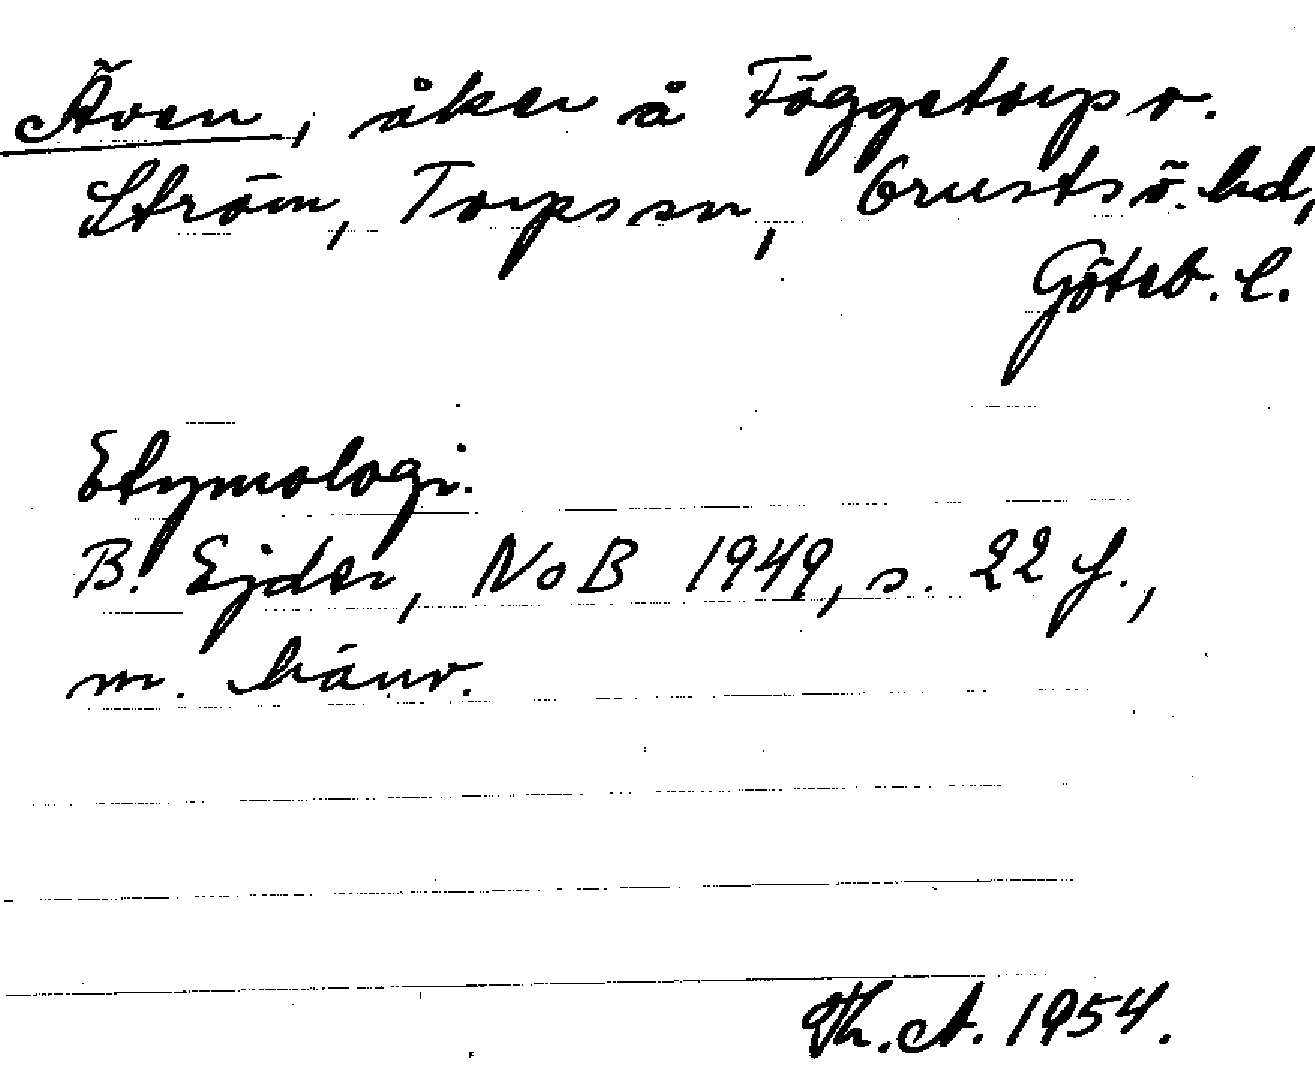 Även, åker å Föggetorp o.
Ström, Torps sn, Orusts ö. hd,
Göteb. l.
Etymologi.
B. Ejder, NoB 1949, s. 22 f.,
m. hänv.
Th. A. 1954.